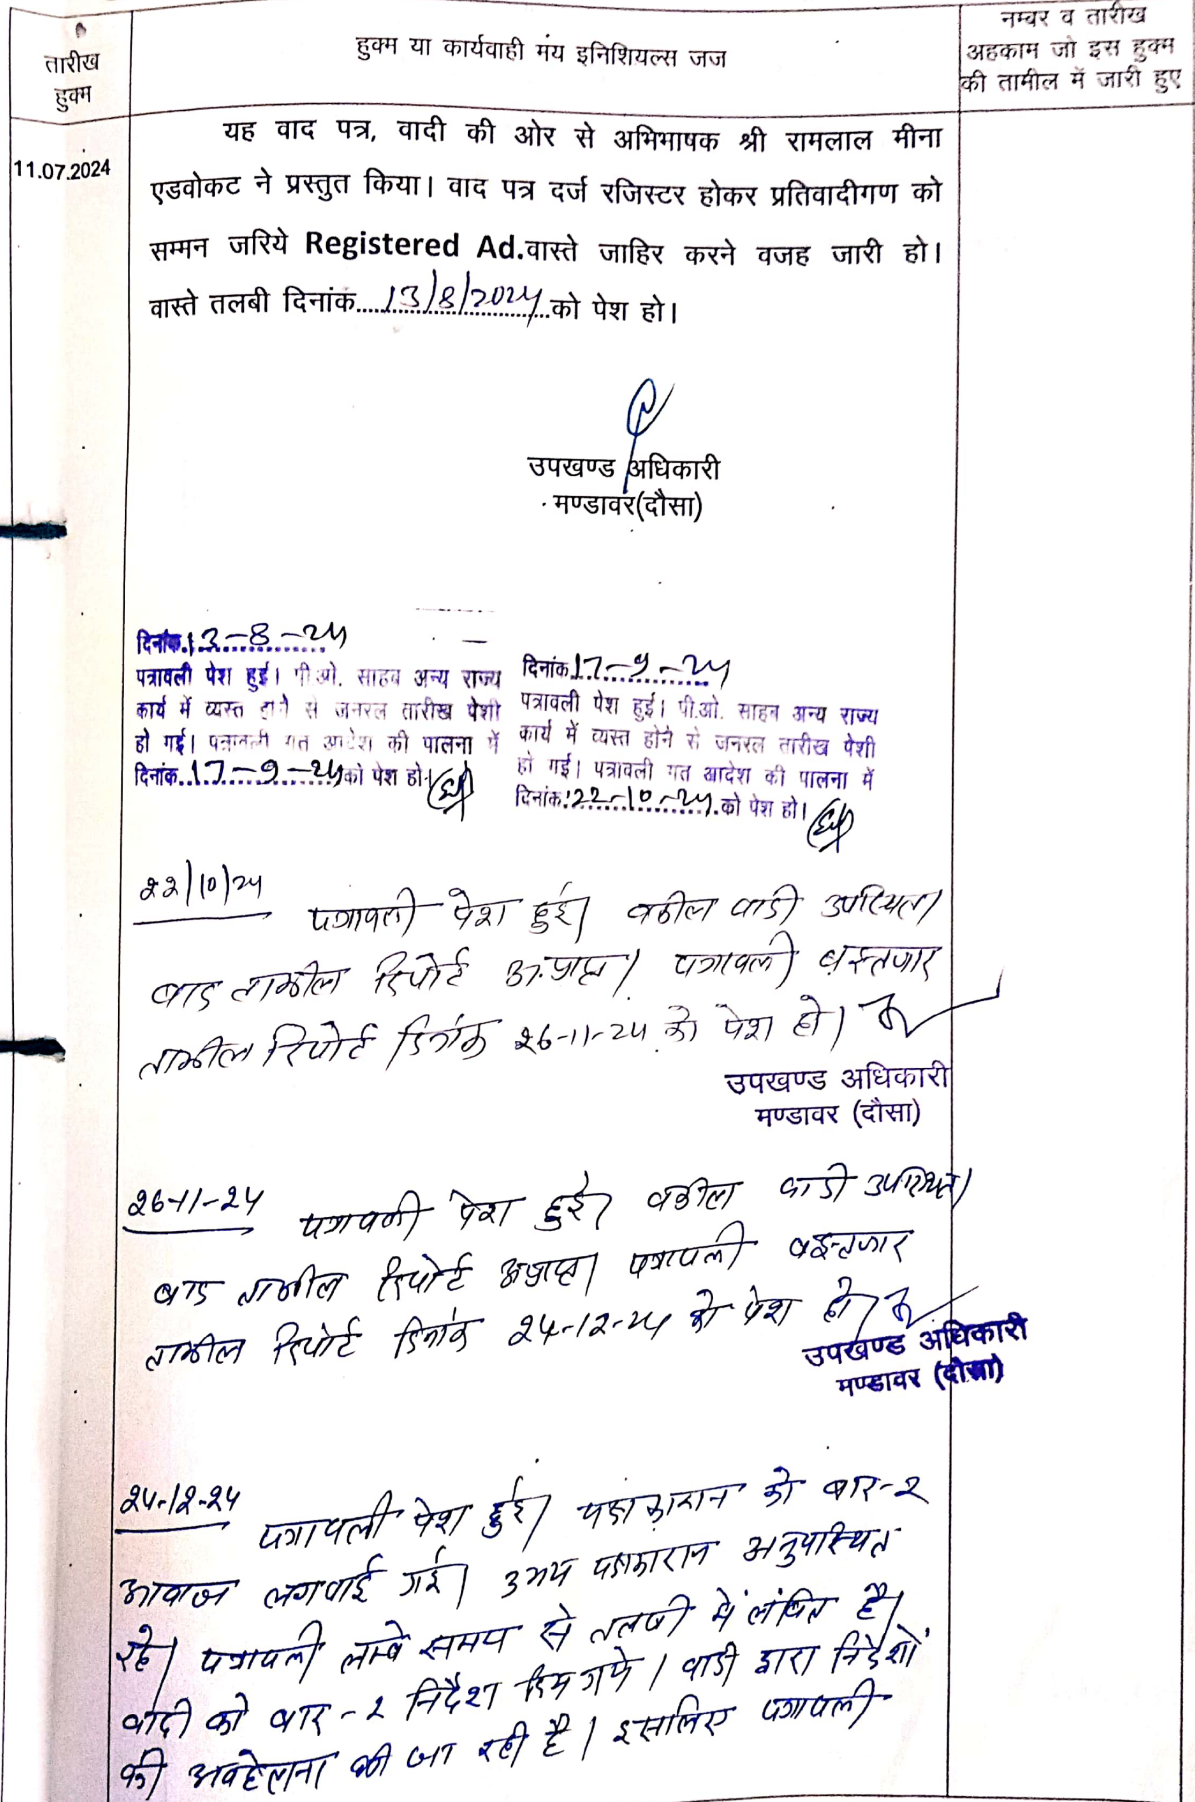 तारीख
हुक्म
हुक्म या कार्यवाही मंय इनिशियल्स जज
नम्बर व तारीख
अहकाम जो इस हुक्म
की तामील में जारी हुए
11.07.2024
यह वाद पत्र, वादी की ओर से अभिभाषक श्री रामलाल मीना
एडवोकट ने प्रस्तुत किया। वाद पत्र दर्ज रजिस्टर होकर प्रतिवादीगण को
सम्मन जरिये Registered Ad.वास्ते जाहिर करने वजह जारी हो।
वास्ते तलबी दिनांक....13/8/2024....को पेश हो।
उपखण्ड अधिकारी
मण्डावर(दौसा)
दिनांक.13-8-24
पत्रावली पेश हुई। पी.ओ. साहब अन्य राज्य
कार्य में व्यस्त होने से जनरल तारीख पेशी
हो गई। पत्रावली गत आदेश की पालना में
दिनांक.17-9-24को पेश हो।
दिनांक17-9-24
पत्रावली पेश हुई। पी.ओ. साहब अन्य राज्य
कार्य में व्यस्त होने से जनरल तारीख पेशी
हो गई। पत्रावली गत आदेश की पालना में
दिनांक.22-10-24.को पेश हो।
22/10/24
पत्रावली पेश हुई। वकील वादी उपस्थित।
बाद तामील रिपोर्ट अप्राप्त। पत्रावली बइन्तजार
तामील रिपोर्ट दिनांक 26-11-24 को पेश हो।
उपखण्ड अधिकारी
मण्डावर (दौसा)
26-11-24
पत्रावली पेश हुई। वकील वादी उपस्थित।
बाद तामील रिपोर्ट अप्राप्त। पत्रावली बइन्तजार
तामील रिपोर्ट दिनांक 24-12-24 को पेश हो।
उपखण्ड अधिकारी
मण्डावर (दौसा)
24-12-24
पत्रावली पेश हुई। पक्षकारान को बार-२
आवाज लगवाई गई। उभय पक्षकारान अनुपस्थित
रहे। पत्रावली लम्बे समय से तलबी में लंबित है।
वादी को बार-२ निर्देश दिये गये। वादी द्वारा निर्देशों
की अवहेलना की जा रही है। इसलिए पत्रावली